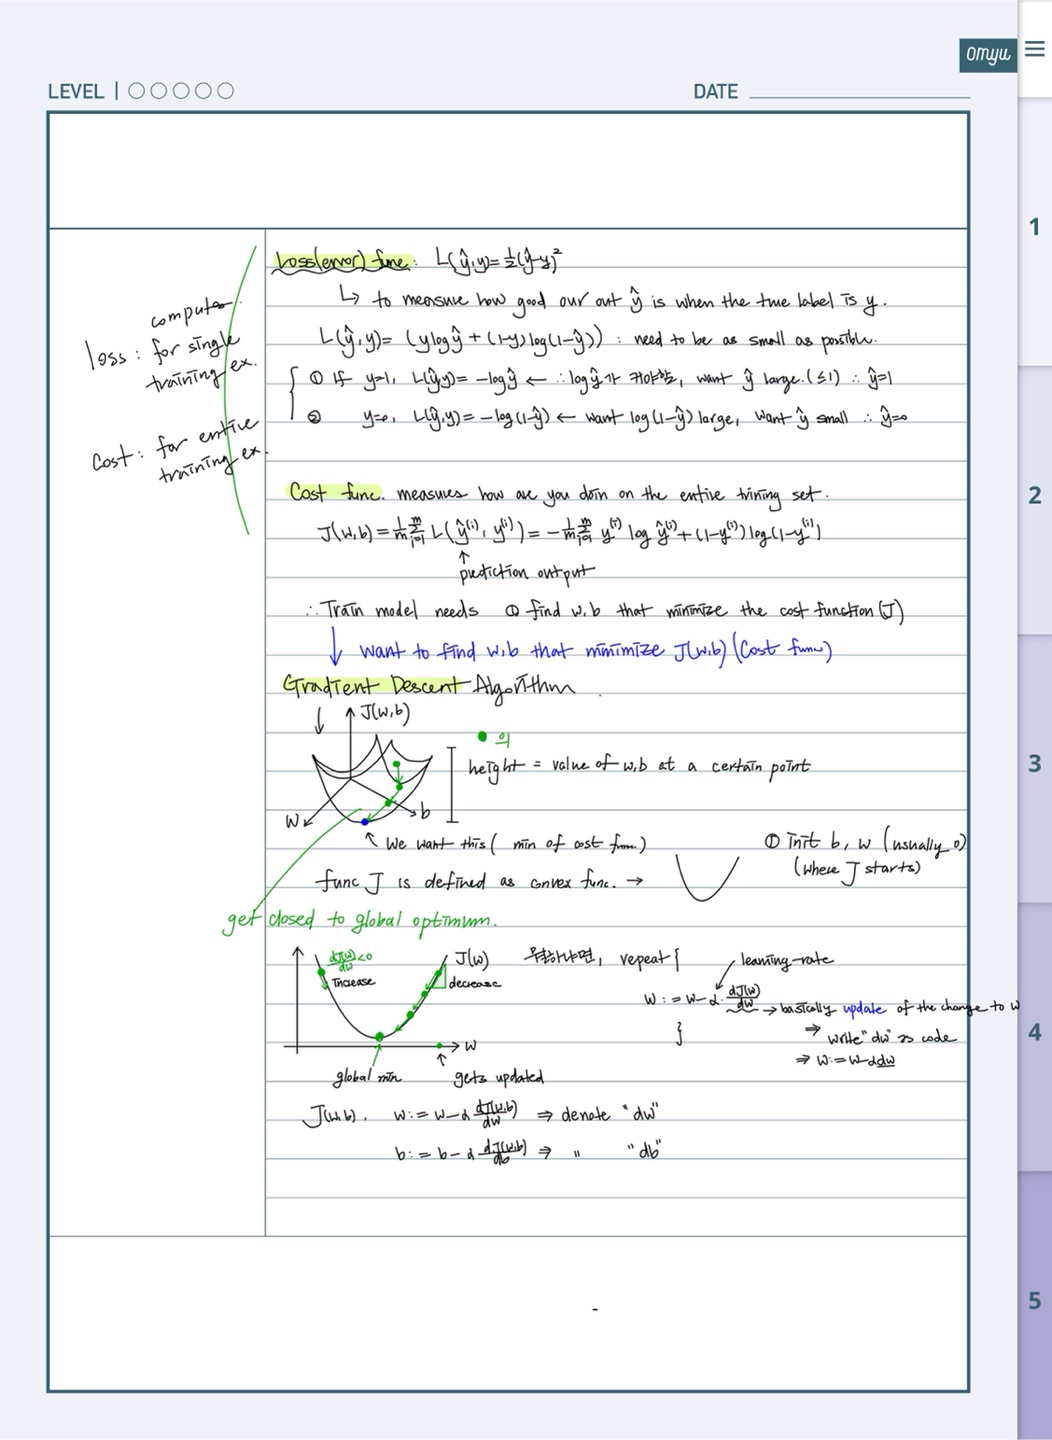 omyu
LEVEL | ○○○○○
DATE
1
2
3
4
5
compute
loss : for single
training ex.
Cost : for entire
training ex.
Loss(error) func : L(ŷ,y)=½(ŷ-y)²
↳ to measure how good our out ŷ is when the true label is y.
L(ŷ,y)= (ylogŷ + (1-y)log(1-ŷ)) : need to be as small as possible.
① If y=1, L(ŷ,y)= -logŷ ← ∴ logŷ가 커야함, want ŷ large.(≤1) ∴ ŷ=1
② y=0, L(ŷ,y)= -log(1-ŷ) ← want log(1-ŷ) large, want ŷ small ∴ ŷ=0
Cost func. measures how are you doin on the entire trining set.
J(w,b) = 1/m Σ L(ŷ⁽ⁱ⁾, y⁽ⁱ⁾) = -1/m Σ y⁽ⁱ⁾ log ŷ⁽ⁱ⁾ + (1-y⁽ⁱ⁾) log(1-y⁽ⁱ⁾)
↑
prediction output
∴ Train model needs ① find w,b that minimize the cost function(J)
↓ want to find w,b that minimize J(w,b) (cost func)
Gradient Descent Algorithm
↓ J(w,b)
의
height = value of w,b at a certain point
w
b
↖ We want this ( min of cost func.)
① init b, w (usually 0)
(where J starts)
func J is defined as convex func. →
get closed to global optimum.
dJ(w)/dw <0
Increase
J(w)
decrease
repeat {
learning-rate
w := w-α·dJ(w)/dw → basically update of the change to w
⇒ write "dw" as code
}
⇒ w:= w-αdw
w
global min
gets updated
J(w,b). w:= w-α dJ(w,b)/dw ⇒ denote "dw"
b:= b-α dJ(w,b)/db ⇒ " "db"
-